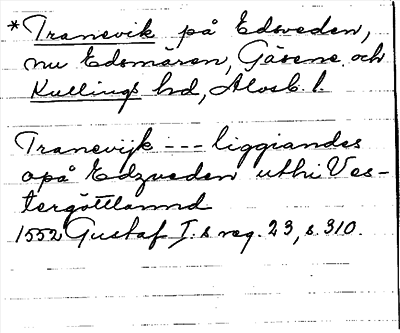 *Tranevik på Edsveden,
nu Edsmären, Gäsene och
Kullings hd, Älvsb. l.
Tranevijk --- liggiandes
opå Edzveden uthi Ves-
tergöttlannd
1552 Gustaf I:s reg. 23, s. 310.